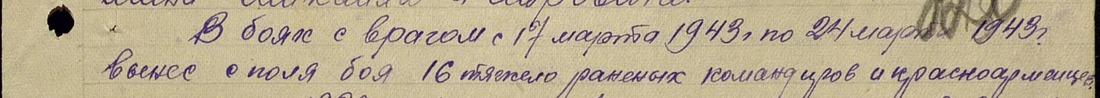 В боях с врагом с 17 марта 1943г по 24 марта 1943г.
вынес с поля боя 16 тяжело раненых командиров и красноармейцев.